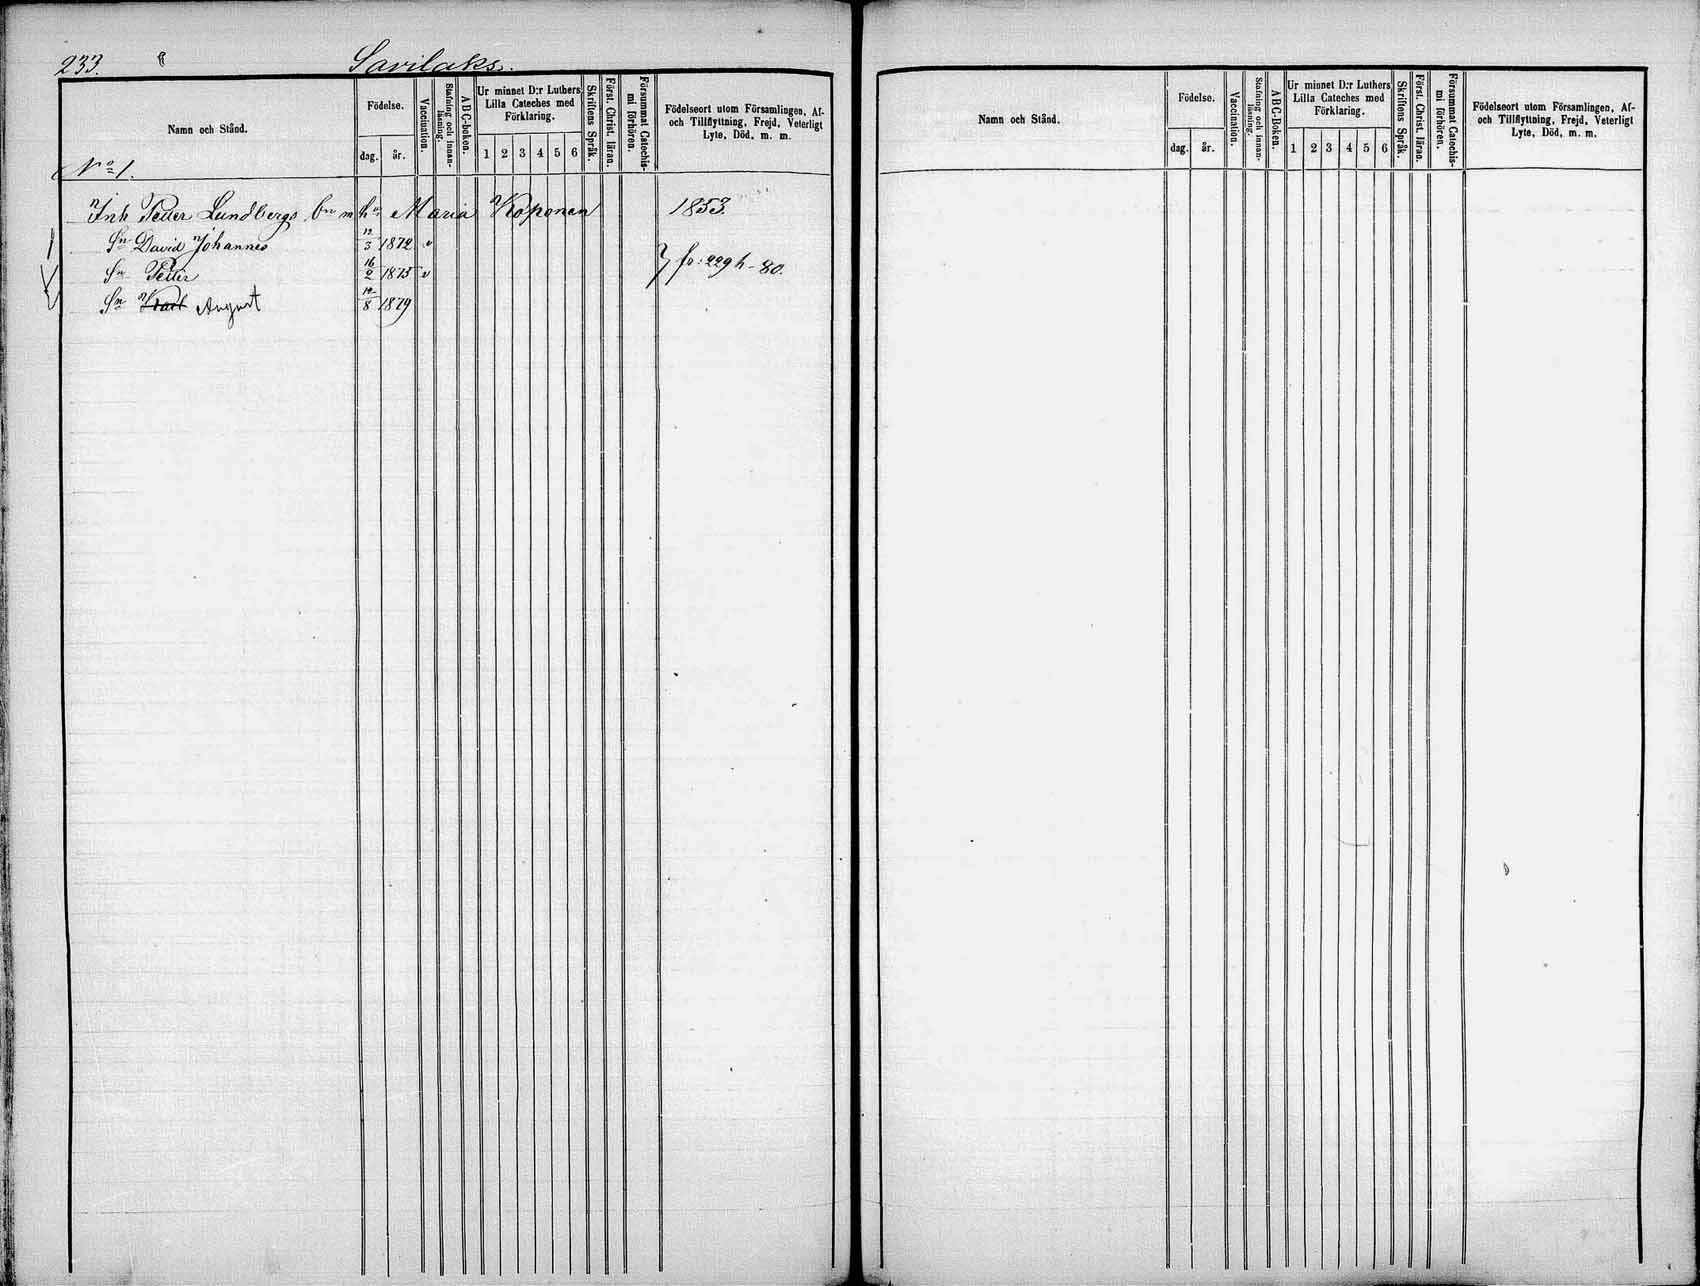 233. Savilaks.
Namn och Stånd.
Födelse.
dag. år.
Vaccination.
Stafning och innan-
läsning.
ABC-boken.
Ur minnet D:r Luthers
Lilla Cateches med
Förklaring.
1 2 3 4 5 6
Skriftens Språk.
Först. Christ. läran.
Försummat Catechis-
mi förhören.
Födelseort utom Församlingen, Af-
och Tillflyttning, Frejd, Veterligt
Lyte, Död, m. m.
No 1.
Inh Petter Lundbergs bn m hn Maria Koponen 1853.
Sn David Johannes 12/3 1872 v
Sn Petter 16/2 1875 v } fr: 229 h - 80.
Sn Karl August 12/8 1879
Namn och Stånd.
Födelse.
dag. år.
Vaccination.
Stafning och innan-
läsning.
ABC-Boken.
Ur minnet D:r Luthers
Lilla Cateches med
Förklaring.
1 2 3 4 5 6
Skriftens Språk.
Först. Christ. läran.
Försummat Catechis-
mi förhören.
Födelseort utom Församlingen, Af-
och Tillflyttning, Frejd, Veterligt
Lyte, Död, m. m.